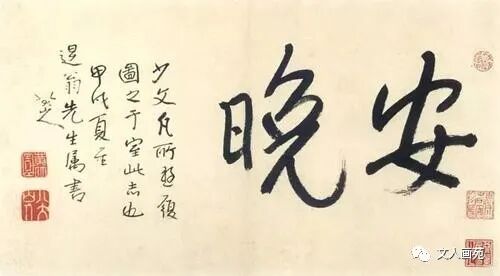 安晚
少文凡所遊履
圖之于室此志也
甲戌夏至
退翁先生属書
文人画苑